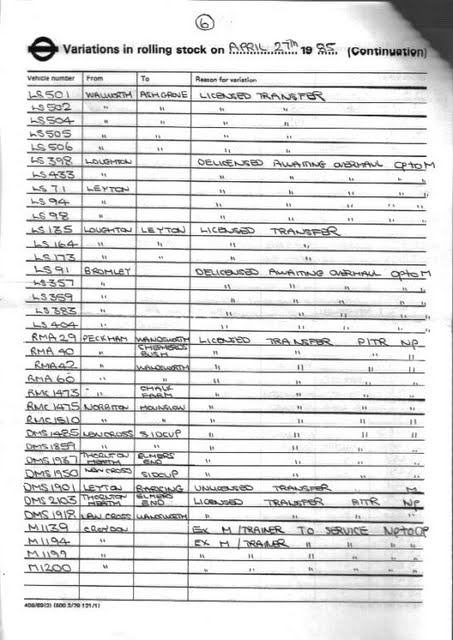 6
Variations in rolling stock on APRIL 27TH 1985 (Continuation)
Vehicle number From To Reason for variation
LS501 WALWORTH ASHGROVE LICENSED TRANSFER
LS502 " " " "
LS504 " " " "
LS505 " " " "
LS506 " " " "
LS398 LOUGHTON DELICENSED AWAITING OVERHAUL OP to M
LS433 " " " " " "
LS71 LEYTON " " " " "
LS94 " " " " " "
LS98 " " " " " "
LS135 LOUGHTON LEYTON LICENSED TRANSFER
LS164 " " " "
LS173 " " " "
LS91 BROMLEY DELICENSED AWAITING OVERHAUL OP to M
LS357 " " " " " "
LS359 " " " " " "
LS383 " " " " " "
LS404 " " " " " "
RMA29 PECKHAM WANDSWORTH LICENSED TRANSFER P/TR NP
RMA40 " SHEPHERDS BUSH " " " "
RMA42 " WANDSWORTH " " " "
RMA60 " " " " " "
RMC1473 " CHALK FARM " " " "
RMC1475 NORBITON HOUNSLOW " " " "
RMC1510 " " " " " "
DMS1485 NEW CROSS SIDCUP " " " "
DMS1859 " " " " " "
DMS1937 THORNTON HEATH ELMERS END " " " "
DMS1950 NEW CROSS SIDCUP " " " "
DMS1901 LEYTON BARKING UNLICENSED TRANSFER M
DMS2103 THORNTON HEATH ELMERS END LICENSED TRANSFER P/TR NP
DMS1918 NEW CROSS WANDSWORTH " " " "
M1139 CROYDON EX M/TRAINER TO SERVICE NP to OP
M1194 " EX M/TRAINER " " " "
M1199 " " " " " " "
M1200 " " " " " " "